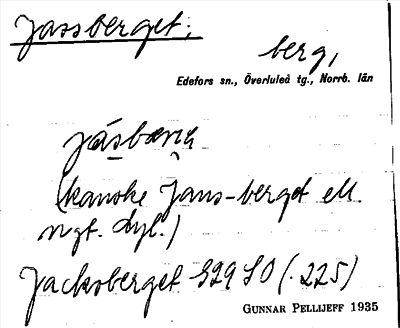 Jassberget;
berg,
Edefors sn., Överluleå tg., Norrb. län
jásbærg
(kanske Jans-berget ell.
ngt. dyl.)
Jacksberget S29 SO (.225)
GUNNAR PELLIJEFF 1935